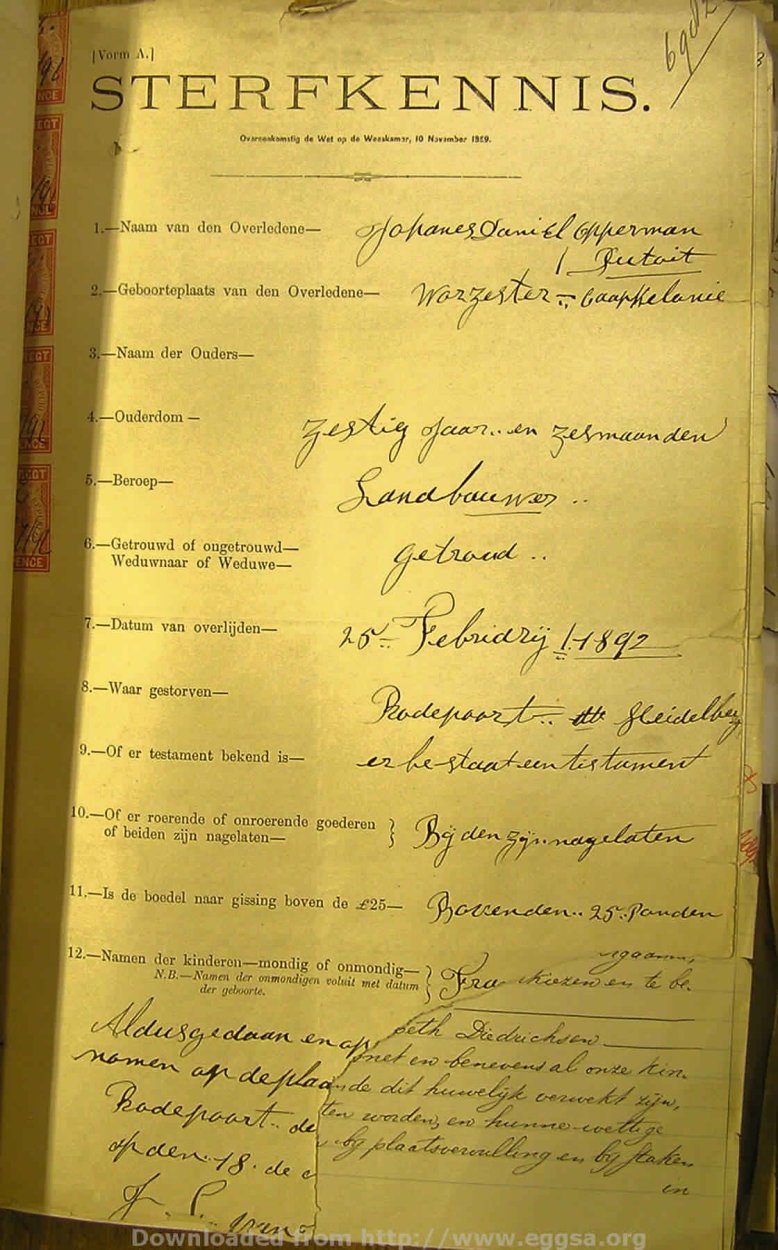 [Vorm A.]
STERFKENNIS.
Overeenkomstig de Wet op de Weeskamer, 10 November 1869.
1.—Naam van den Overledene— Johanes Daniel Opperman
Dutoit
2.—Geboorteplaats van den Overledene— Worzester = Caapkelonie
3.—Naam der Ouders—
4.—Ouderdom— Zestig Jaar.. en zesmaanden
5.—Beroep— Landbouwer ..
6.—Getrouwd of ongetrouwd— getroud ..
Weduwnaar of Weduwe—
7.—Datum van overlijden— 25 Febridrij 1892
8.—Waar gestorven— Rodepoort .. Heidelberg
9.—Of er testament bekend is— er be staat een testament
10.—Of er roerende of onroerende goederen
of beiden zijn nagelaten— } Bijden zijn nagelaten
11.—Is de boedel naar gissing boven de £25— Bovenden.. 25 .. Ponden
12.—Namen der kinderen—mondig of onmondig—
N.B.—Namen der onmondigen voluit met datum
der geboorte. } Fra
kiezen en te be-
beth Diedrichsen
met en benevens al onze kin-
de dit huwelijk verwekt zijn,
ten worden, en hunne wettige
bij plaatsvervulling en bij staken
in
Aldus gedaan en op
nomen op de plaa
Rodepoort .. de
op den 18 . de
Downloaded from http://www.eggsa.org